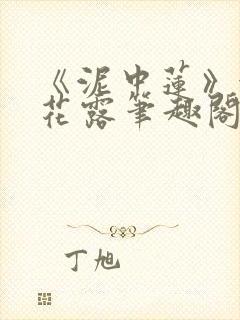 《泥中蓮》
花露筆趣閣
丁旭